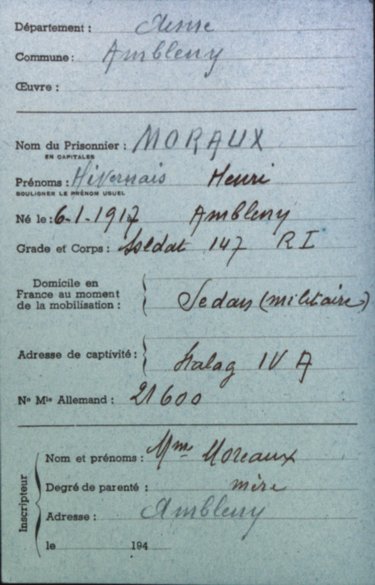 Département : Aisne
Commune : Ambleny
Œuvre :
Nom du Prisonnier : MORAUX
EN CAPITALES
Prénoms : Hivernais Henri
SOULIGNER LE PRÉNOM USUEL
Né le : 6-1-1917 Ambleny
Grade et Corps : Soldat 147 RI
Domicile en
France au moment
de la mobilisation : Sedan (militaire)
Adresse de captivité : Stalag IV A
No Mle Allemand : 21600
Inscripteur
Nom et prénoms : Mme Moreaux
Degré de parenté : mère
Adresse : Ambleny
le 194